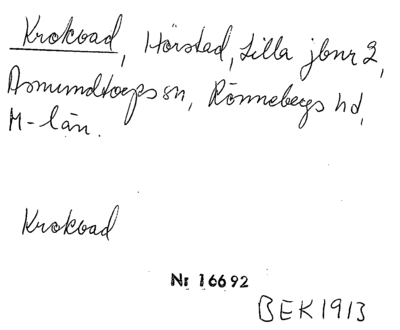 Krokvad, Hörstad, Lilla jbnr 2,
Asmundtorps sn, Rönnebergs hd,
M-län.
Krokvad
Nr 16692
BEK1913